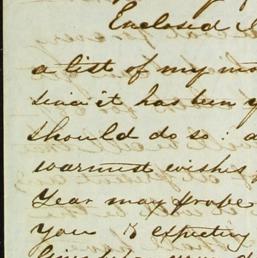 Enclosed I
a list of my mo
since it has been y
should do so : a
warmest wishes
Year may prove
You is expecting